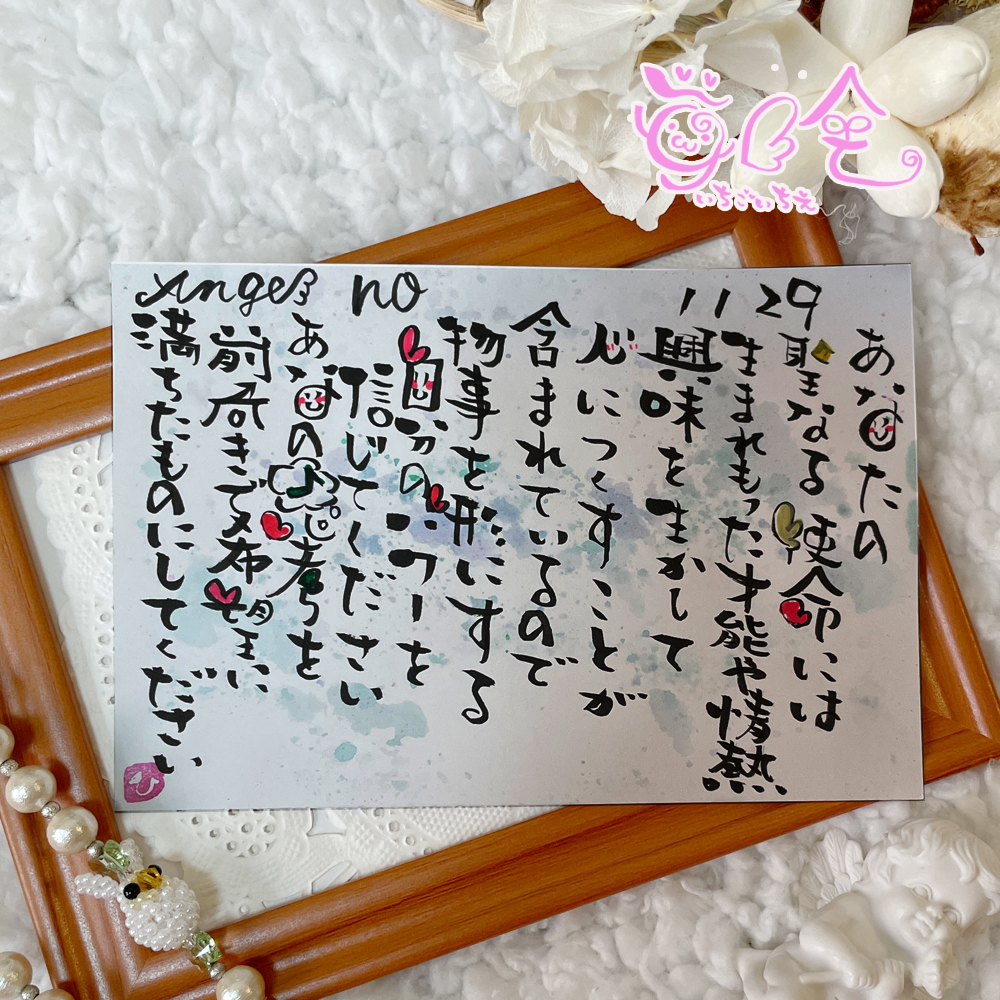 苺一会
いちごいちえ
Angel no 1129
あなたの
聖なる使命には
生まれもった才能や情熱
興味を生かして
心につくすことが
含まれているので
物事を形にする
自分のパワーを
信じてください
あなたの思考を
前向きで希望に
満ちたものにしてください
ひ